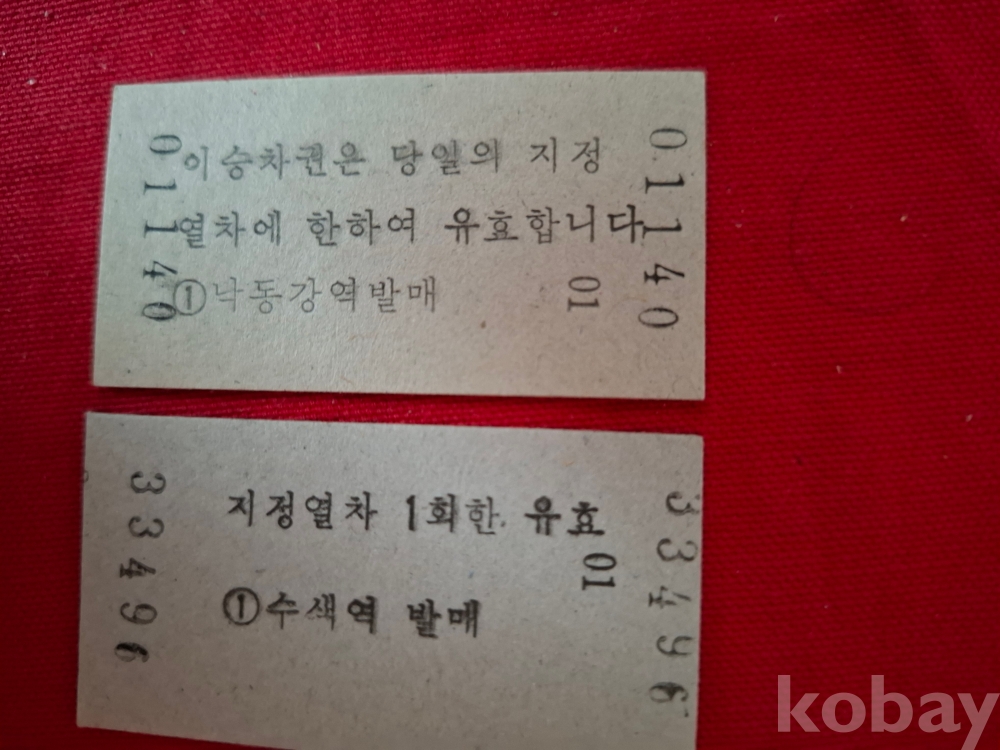 01140
이승차권은 당일의 지정
열차에 한하여 유효합니다
①낙동강역발매 01
01140
33496
지정열차 1회한. 유효
01
①수색역 발매
33496
kobay